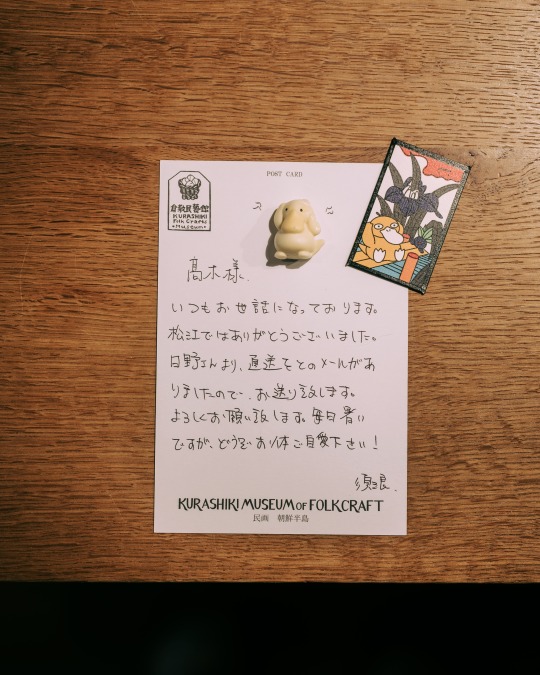 POST CARD
倉敷民藝館
KURASHIKI
Folk Crafts
Museum
髙木様.
いつもお世話になっております。
松江ではありがとうございました。
日野さんより、直送をとのメールがあ
りましたので、お送り致します。
よろしくお願い致します。毎日暑い
ですが、どうぞお体ご自愛下さい!
須浪.
KURASHIKI MUSEUM OF FOLKCRAFT
民画 朝鮮半島